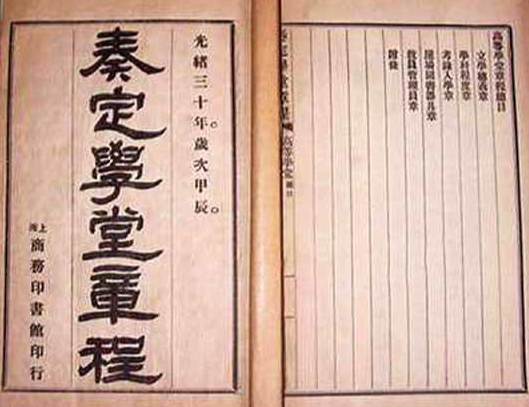 光緒三十年歲次甲辰
奏定學堂章程
上海商務印書館印行
高等學堂章程目
立學總義章
學科程度章
考錄入學章
屋場圖書器具章
教員管理員章
附條
奏定學堂章程
高等學堂
目